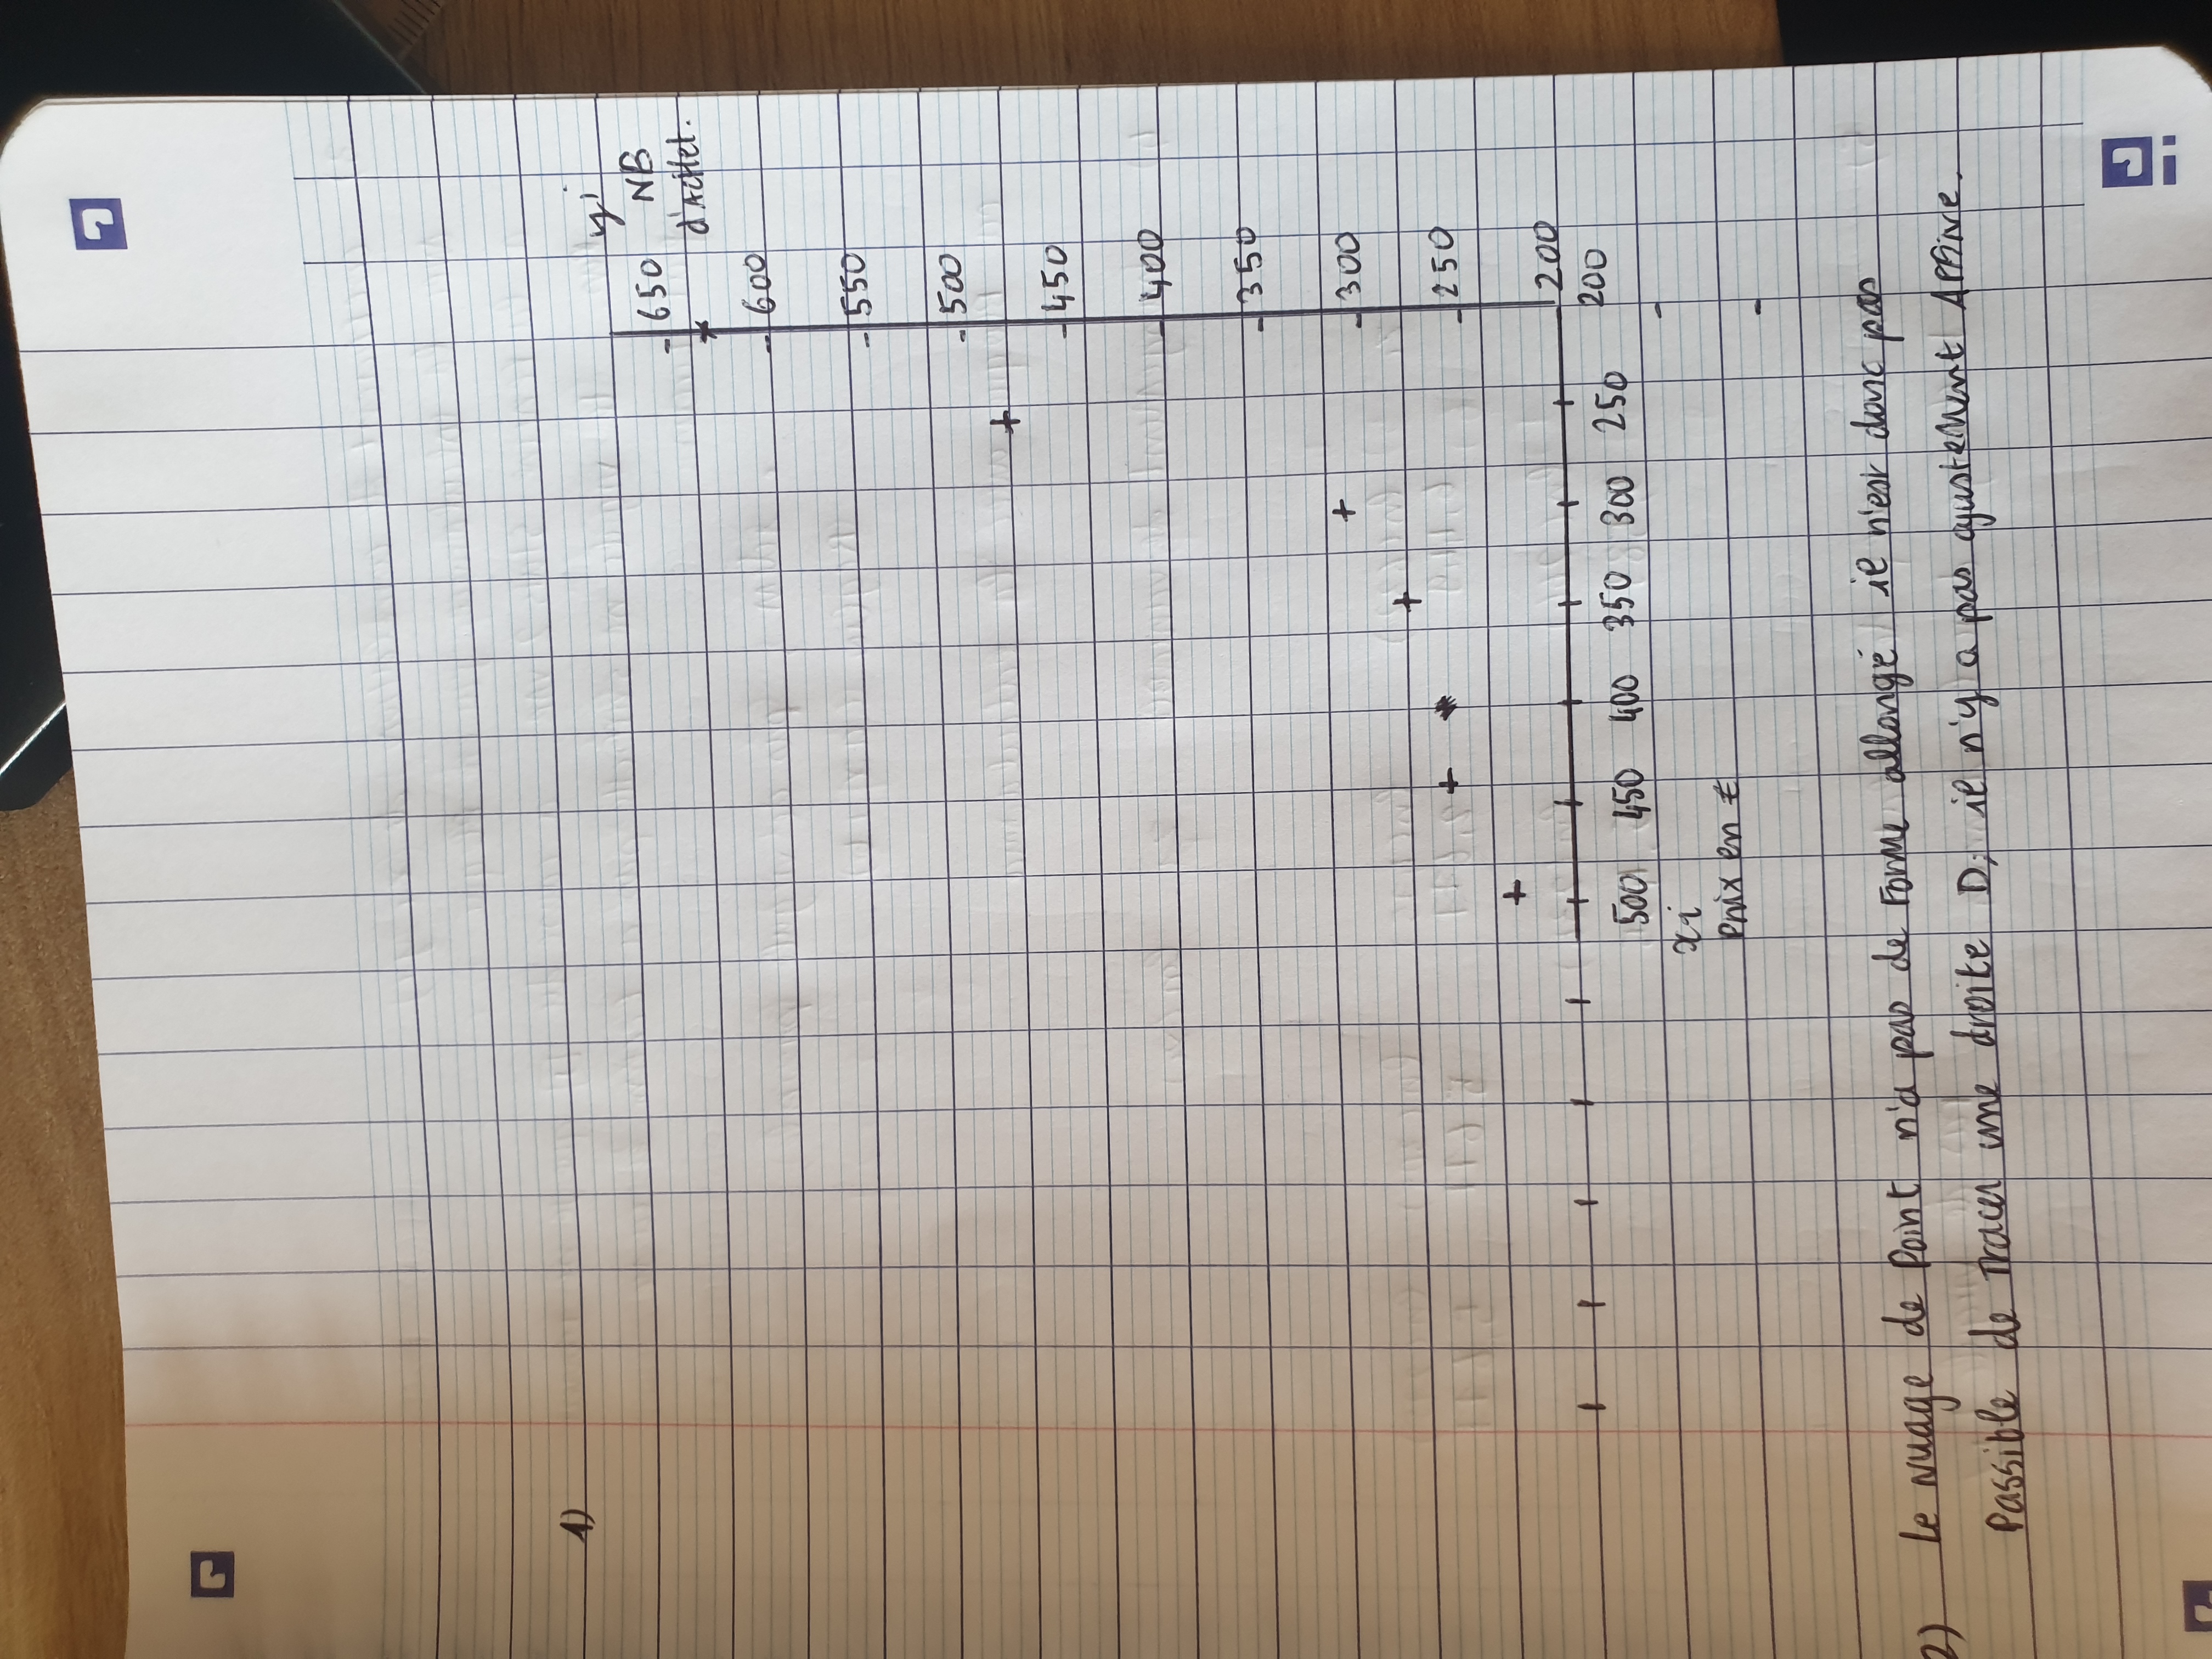 1)
yi
650 NB
d'Achet.
600
550
500
450
400
350
300
250
200
500 450 400 350 300 250 200
xi
Prix en €
2) Le Nuage de Point n'a pas de Forme allongé il n'est donc pas
Passible de Tracer une droite D; il n'y a pas ajustement Affine.